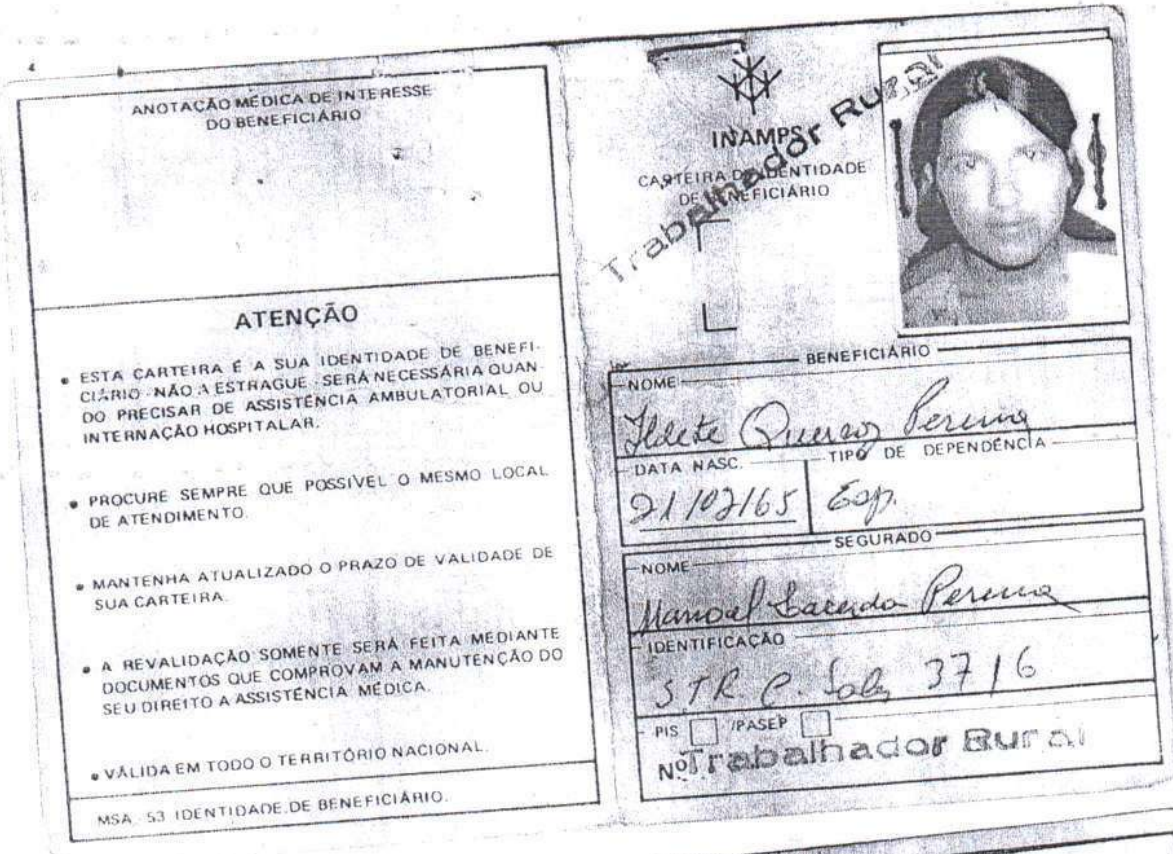 ANOTAÇÃO MÉDICA DE INTERESSE
DO BENEFICIÁRIO
ATENÇÃO
• ESTA CARTEIRA É A SUA IDENTIDADE DE BENEFI-
CIÁRIO - NÃO A ESTRAGUE - SERÁ NECESSÁRIA QUAN-
DO PRECISAR DE ASSISTÊNCIA AMBULATORIAL OU
INTERNAÇÃO HOSPITALAR.
• PROCURE SEMPRE QUE POSSÍVEL O MESMO LOCAL
DE ATENDIMENTO.
• MANTENHA ATUALIZADO O PRAZO DE VALIDADE DE
SUA CARTEIRA.
• A REVALIDAÇÃO SOMENTE SERÁ FEITA MEDIANTE
DOCUMENTOS QUE COMPROVAM A MANUTENÇÃO DO
SEU DIREITO A ASSISTÊNCIA MÉDICA.
• VÁLIDA EM TODO O TERRITÓRIO NACIONAL.
MSA - 53 IDENTIDADE DE BENEFICIÁRIO.
INAMPS
CARTEIRA DE IDENTIDADE
DE BENEFICIÁRIO
Trabalhador Rural
BENEFICIÁRIO
NOME
Ildete Queiroz Pereira
DATA NASC.
TIPO DE DEPENDÊNCIA
21/02/65
Esp.
SEGURADO
NOME
Manoel Lacerda Pereira
IDENTIFICAÇÃO
S.T.R. C. 3716
PIS /PASEP
Nº Trabalhador Rural